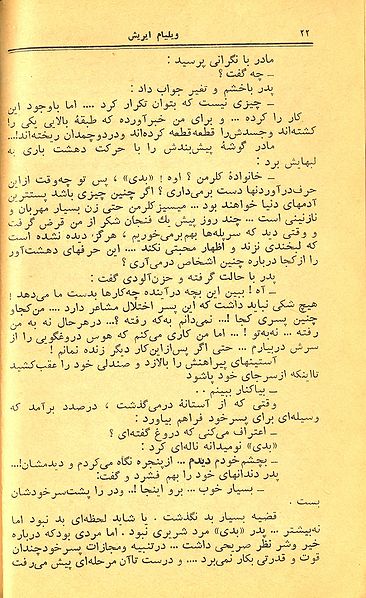 ۲۲
ویلیام ایریش
مادر با نگرانی پرسید :
ــ چه گفت ؟
پدر باخشم و تغیر جواب داد :
ــ چیزی نیست که بتوان تکرار کرد .... اما باوجود این
کار را کرده ... و برای من خبرآورده که طبقهٔ بالایی یکی را
کشته‌اند وجسدش‌را قطعه‌قطعه کرده‌اند ودردوچمدان ریخته‌اند!...
مادر گوشهٔ پیش‌بندش را با حرکت دهشت باری به
لبهایش برد :
ــ خانوادهٔ کلرمن ؟ اوه ! «بدی» ، پس تو چه‌وقت ازاین
حرف‌درآوردنها دست برمی‌داری ؟ اگر چنین چیزی باشد پستترین
آدمهای دنیا خواهند بود ... میسیزکلرمن حتی زن بسیار مهربان و
نازنینی است ... چند روز پیش یك فنجان شکر از من قرض گرفت
و وقتی دید که سرپله‌ها بهم‌برمی‌خوریم ، هرگز دیده نشده است
که لبخندی نزند و اظهار محبتی نکند .... این حرفهای دهشت‌آور
را ازکجا درباره چنین اشخاص درمی‌آری ؟
پدر با حالت گرفته و حزن‌آلودی گفت :
ــ آه ! ببین این بچه درآینده چه‌کارها بدست ما می‌دهد !
هیچ شکی نباید داشت که این پسر اختلال مشاعر دارد .... من‌کجاو
چنین پسری کجا !... نمی‌دانم به‌که رفته ؟... درهرحال نه به من
رفته ... نه‌به‌تو ! ... اما من کاری می‌کنم که هوس دروغگویی را از
سرش دربیارم ... حتی اگر پس‌ازاین‌کار دیگر زنده نمانم !
آستینهای پیراهنش را بالازد و صندلی خود را عقب‌کشید
تااینکه ازسرجای خود پاشود
ــ بیاکنار ببینم ..
وقتی که از آستانهٔ درمی‌گذشت ، درصدد برآمد که
وسیله‌ای برای پسرخود فراهم بیاورد :
ــ اعتراف می‌کنی که دروغ گفته‌ای ؟
«بدی» نومیدانه ناله‌ای کرد :
ــ بچشم‌خودم دیدم ... ازپنجره نگاه می‌کردم و دیدمشان!...
پدر دندانهای خود را بهم فشرد و گفت:
ــ بسیار خوب ... برو اینجا !.. ودر را پشت‌سرخودشان
بست .
قضیه بسیار بد نگذشت . یا شاید لحظه‌ای بد نبود اما
نه‌بیشتر ... پدر «بدی» مرد شریری نبود . اما مردی بودکه درباره
خیر وشر نظر صریحی داشت ... درتنبیه ومجازات پسرخودچندان
قوت و قدرتی بکار نمی‌برد .... و درست تاآن مرحله‌ای پیش می‌رفت